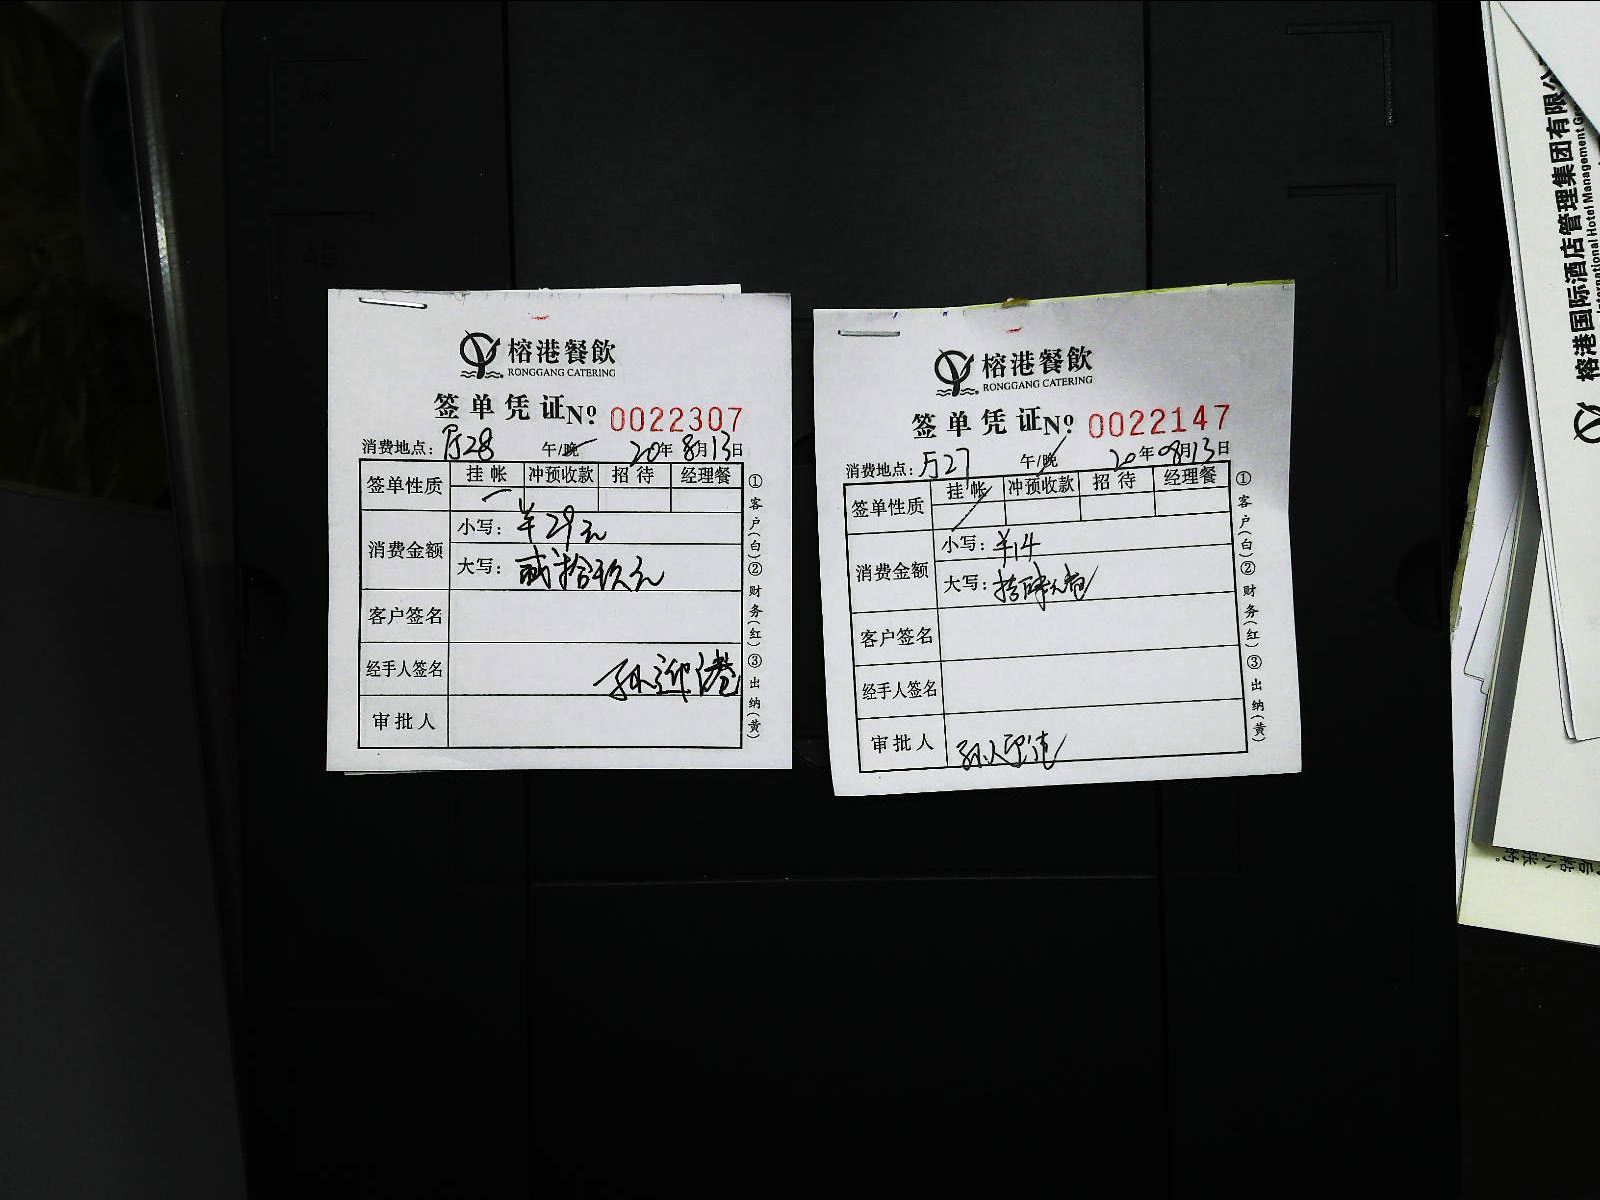 榕港餐飲
RONGGANG CATERING
签单凭证 Nº 0022307
消费地点：厅28 午/晚 20年8月13日
签单性质 挂帐 冲预收款 招待 经理餐
消费金额
小写：¥29元
大写：贰拾玖元
客户签名
经手人签名 孙迎港
审批人
①客户(白)②财务(红)③出纳(黄)
榕港餐飲
RONGGANG CATERING
签单凭证 Nº 0022147
消费地点：厅27 午/晚 20年08月13日
签单性质 挂帐 冲预收款 招待 经理餐
消费金额
小写：¥14
大写：拾肆元
客户签名
经手人签名
审批人
①客户(白)②财务(红)③出纳(黄)
榕港国际酒店管理集团有限公
International Hotel Management Gr
A4
A5